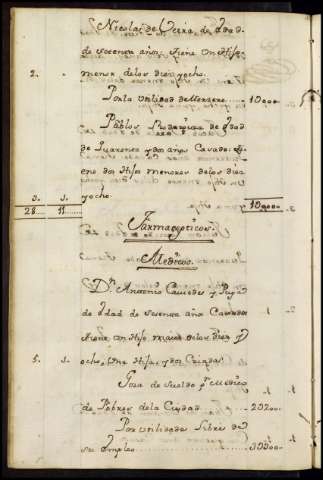 Nicolas de Veira, de Edad
de secenta años; tiene un Hijo
2. . menor de los diez y ocho.
Por la Utilidad de Herrero ..... 1000..
Pablos Rodriguez de Edad
de quarenta y dos años Casado: tie
ne dos Hijos menores de los diez
5. 1. y ocho
28 11 ..... 1000..
Farmaceoticos.
Medicos.
Dn. Antonio y
de Edad de secenta años Casado
tiene un Hijo maior de los diez y
5. 1. ocho, una Hija, y dos Criadas.
Goza de Sueldo pr. Medico
de Pobres de la Ciudad ..... 20200..
Por utilidades Libres de
su empleo ..... 30300..